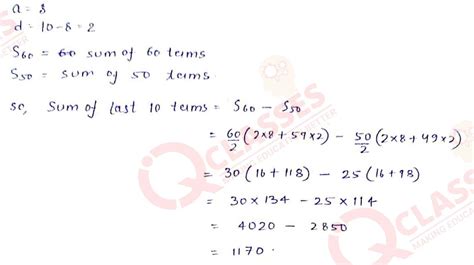 a = 8
d = 10-8 = 2
S60 = 60 sum of 60 terms
S50 = sum of 50 terms
so, sum of last 10 terms = S60 - S50
= 60/2 (2×8 + 59×2) - 50/2 (2×8 + 49×2)
= 30 (16 + 118) - 25 (16 + 98)
= 30 × 134 - 25 × 114
= 4020 - 2850
= 1170.
QCLASSES
MAKING EDUCATION BETTER
QCLASS
MAKING EDUCA